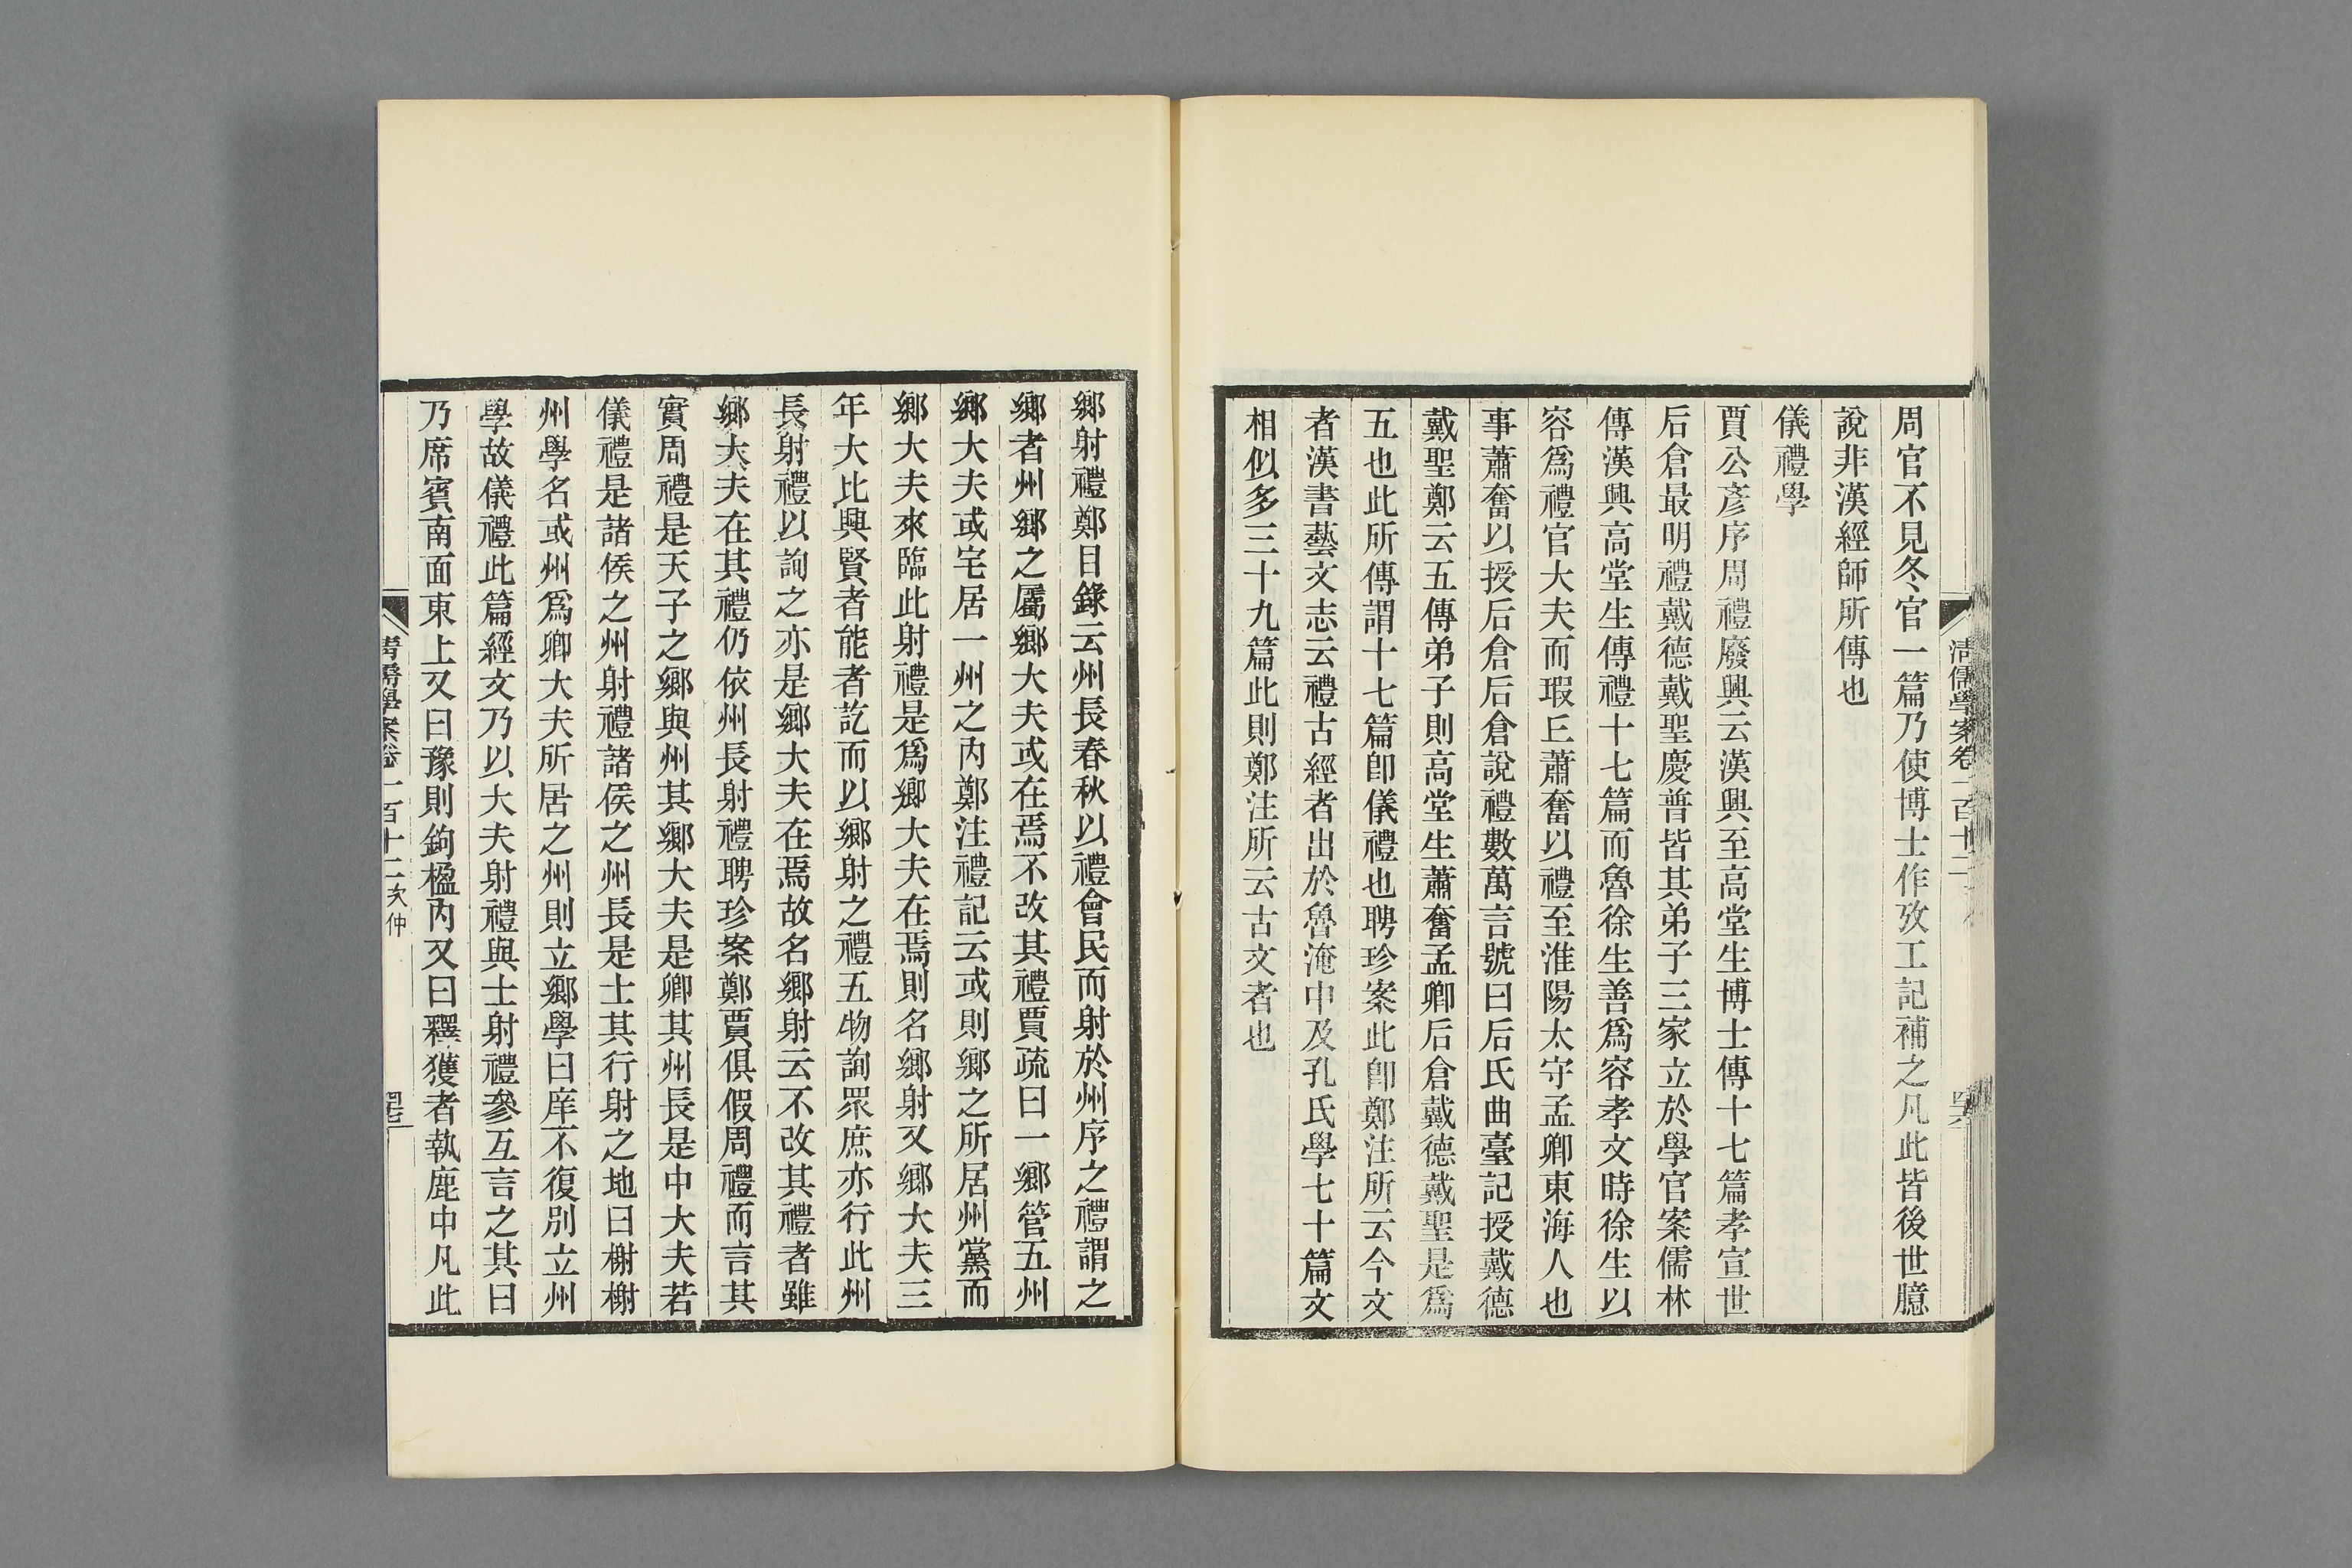 周官不見冬官一篇乃使博士作攷工記補之凡此皆後世臆
說非漢經師所傳也
儀禮學
賈公彥序周禮廢興云漢興至高堂生博士傳十七篇孝宣世
后倉最明禮戴德戴聖慶普皆其弟子三家立於學官案儒林
傳漢興高堂生傳禮十七篇而魯徐生善爲容孝文時徐生以
容爲禮官大夫而瑕丘蕭奮以禮至淮陽太守孟卿東海人也
事蕭奮以授后倉后倉說禮數萬言號曰后氏曲臺記授戴德
戴聖鄭云五傳弟子則高堂生蕭奮孟卿后倉戴德戴聖是爲
五也此所傳謂十七篇卽儀禮也聘珍案此卽鄭注所云今文
者漢書藝文志云禮古經者出於魯淹中及孔氏學七十篇文
相似多三十九篇此則鄭注所云古文者也
清儒學案卷一百十二
鄉射禮鄭目錄云州長春秋以禮會民而射於州序之禮謂之
鄉者州鄉之屬鄉大夫或在焉不改其禮賈疏曰一鄉管五州
鄉大夫或宅居一州之內鄭注禮記云或則鄉之所居州黨而
鄉大夫來臨此射禮是爲鄉大夫在焉則名鄉射又鄉大夫三
年大比興賢者能者訖而以鄉射之禮五物詢眾庶亦行此州
長射禮以詢之亦是鄉大夫在焉故名鄉射云不改其禮者雖
鄉大夫在其禮仍依州長射禮聘珍案鄭賈俱假周禮而言其
實周禮是天子之鄉與州其鄉大夫是卿其州長是中大夫若
儀禮是諸侯之州射禮諸侯之州長是士其行射之地曰榭榭
州學名或州爲卿大夫所居之州則立鄉學曰庠不復別立州
學故儀禮此篇經文乃以大夫射禮與士射禮參互言之其曰
乃席賓南面東上又曰豫則鉤楹內又曰釋獲者執鹿中凡此
清儒學案卷一百十二 次仲